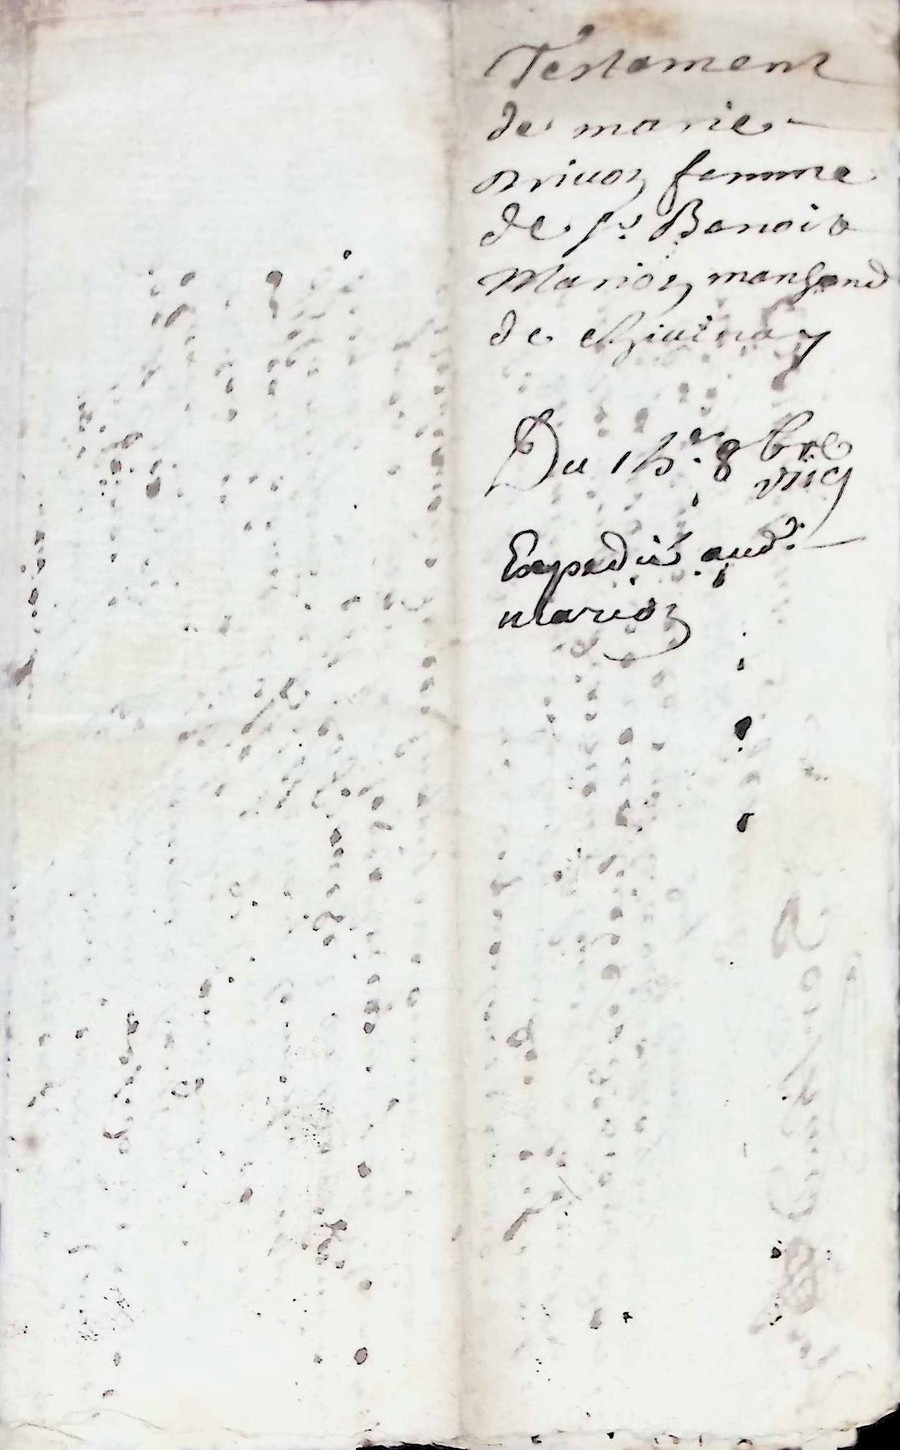 Testament
de marie
privoz femme
de sr Benoit
Marioz marchand
de chivinay
Du 15e 8bre
Expedié aud.
marioz